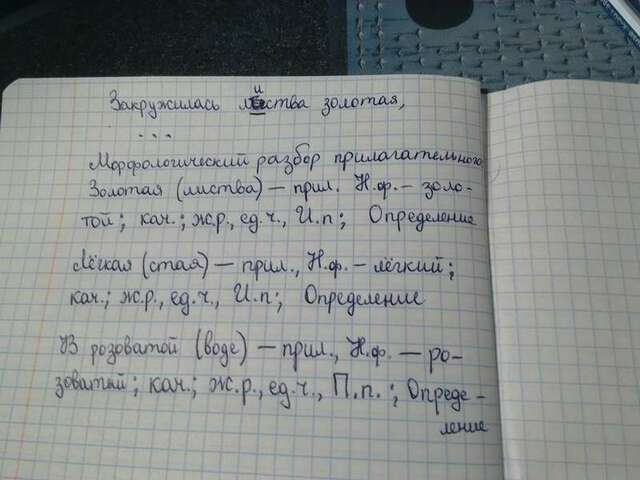 Закружилась листва золотая,
...
Морфологический разбор прилагательного
Золотая (листва) — прил. Н.ф. – золо-
той; кач.; ж.р., ед.ч., И.п; Определение
Лёгкая (стая) — прил., Н.ф. – лёгкий;
кач.; ж.р., ед.ч., И.п; Определение
В розоватой (воде) — прил., Н.ф. — ро-
зоватый; кач.; ж.р., ед.ч., П.п.; Опреде-
ление